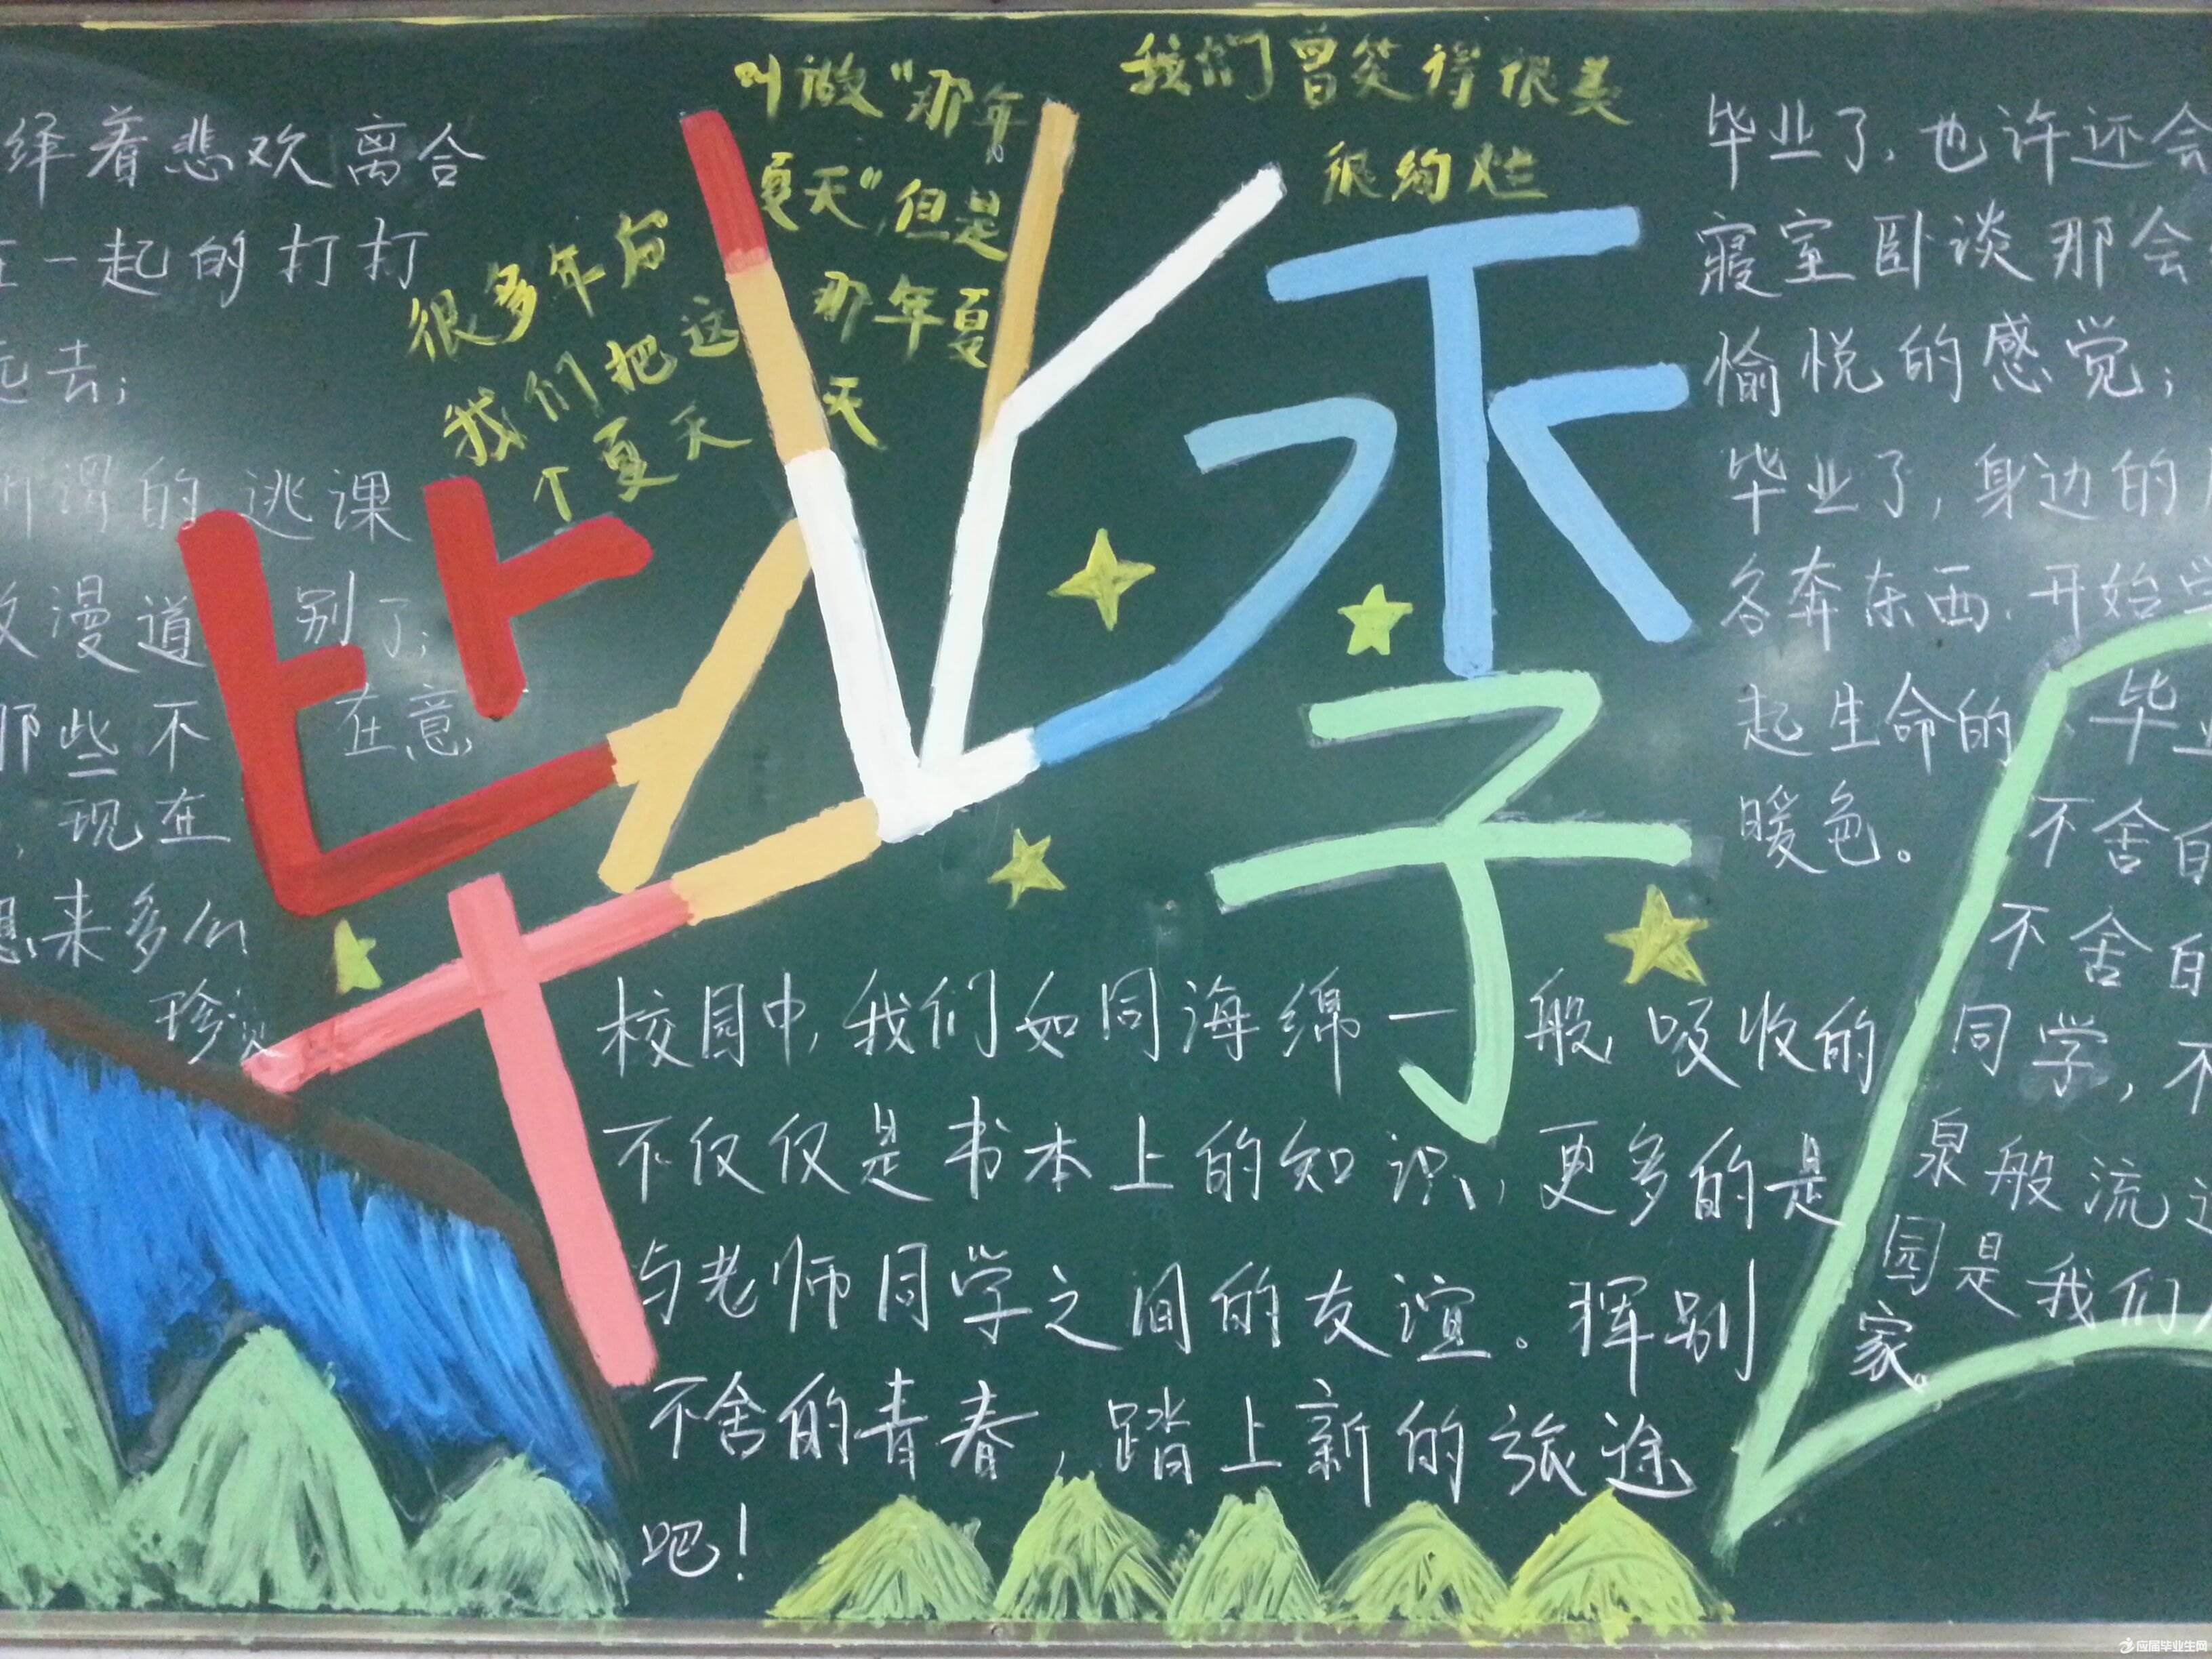 绎着悲欢离合
一起的打打
去;
谓的逃课
漫道别了;
那些不在意,
,现在
想来多么
珍贵
很多年后
我们把这
个夏天
叫做“那年
夏天”,但是
那年夏
天
我们曾笑得很美
很绚烂
毕业季
校园中,我们如同海绵一般,吸收的
不仅仅是书本上的知识,更多的是
与老师同学之间的友谊。挥别
不舍的青春,踏上新的旅途
吧!
毕业了,也许还会
寝室卧谈那会
愉悦的感觉;
毕业了,身边的
各奔东西,开始
起生命的
暖色。
毕业
不舍的
不舍的
同学,不
泉般流
园是我们
家。
应届毕业生网